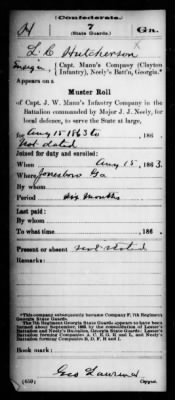 (Confederate.)
H 7 Ga.
(State Guards.)
L. C. Hutcherson
Capt. Mann's Company (Clayton
Infantry), Neely's Batt'n, Georgia.*
Appears on a
Muster Roll
of Capt. J. W. Mann's Infantry Company in the
Battalion commanded by Major J. J. Neely, for
local defence, to serve the State at large,
for Aug 15 1863 to , 186 .
Not dated , 186 .
Joined for duty and enrolled:
When Aug 15, 1863.
Where Jonesboro Ga
By whom
Period Six months
Last paid:
By whom
To what time , 186 .
Present or absent not stated
Remarks:
*This company subsequently became Company F, 7th Regiment
Georgia State Guards.
The 7th Regiment Georgia State Guards appears to have been
formed about September, 1863, by the consolidation of
and Neely's Battalions, Georgia State Guards,
Battalion forming Companies and Neely's
Battalion forming Companies B, D, F, H and I.
Book mark:
Geo Lawrence
(659) Copyist.